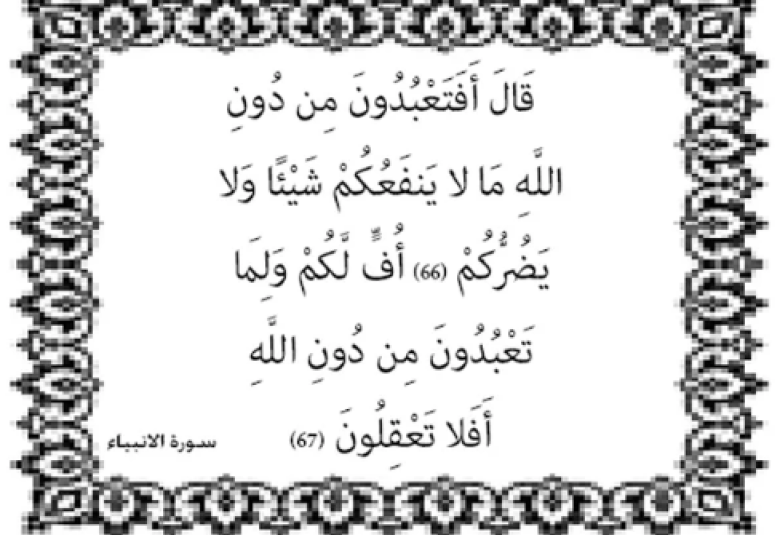 قَالَ أَفَتَعْبُدُونَ مِن دُونِ
اللَّهِ مَا لا يَنفَعُكُمْ شَيْئًا وَلا
يَضُرُّكُمْ (66) أُفٍّ لَّكُمْ وَلِمَا
تَعْبُدُونَ مِن دُونِ اللَّهِ
أَفَلا تَعْقِلُونَ (67) سورة الانبياء